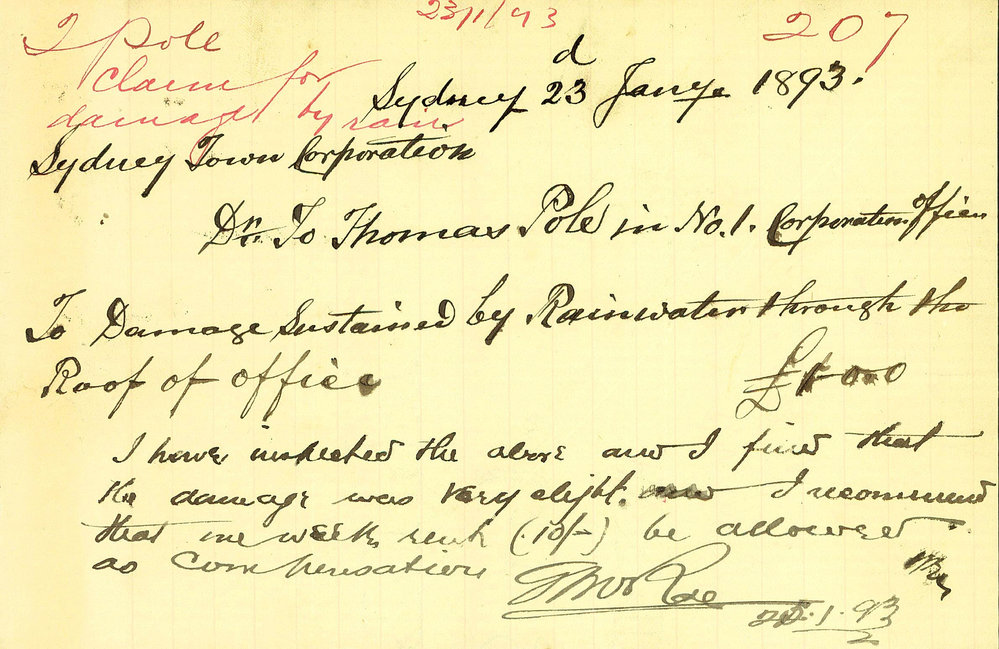 23/1/93
207
T Pole
Claim for
damages by rain
Sydney 23d Jany 1893.
Sydney Town Corporation
Dr. To Thomas Pole in No. 1. Corporation offices
To Damage Sustained by Rainwater through the
Roof of office £1-0-0
I have inspected the above and I find that
the damage was very slight. and I recommend
that one weeks rent (10/-) be allowed
as Compensation
25.1.93